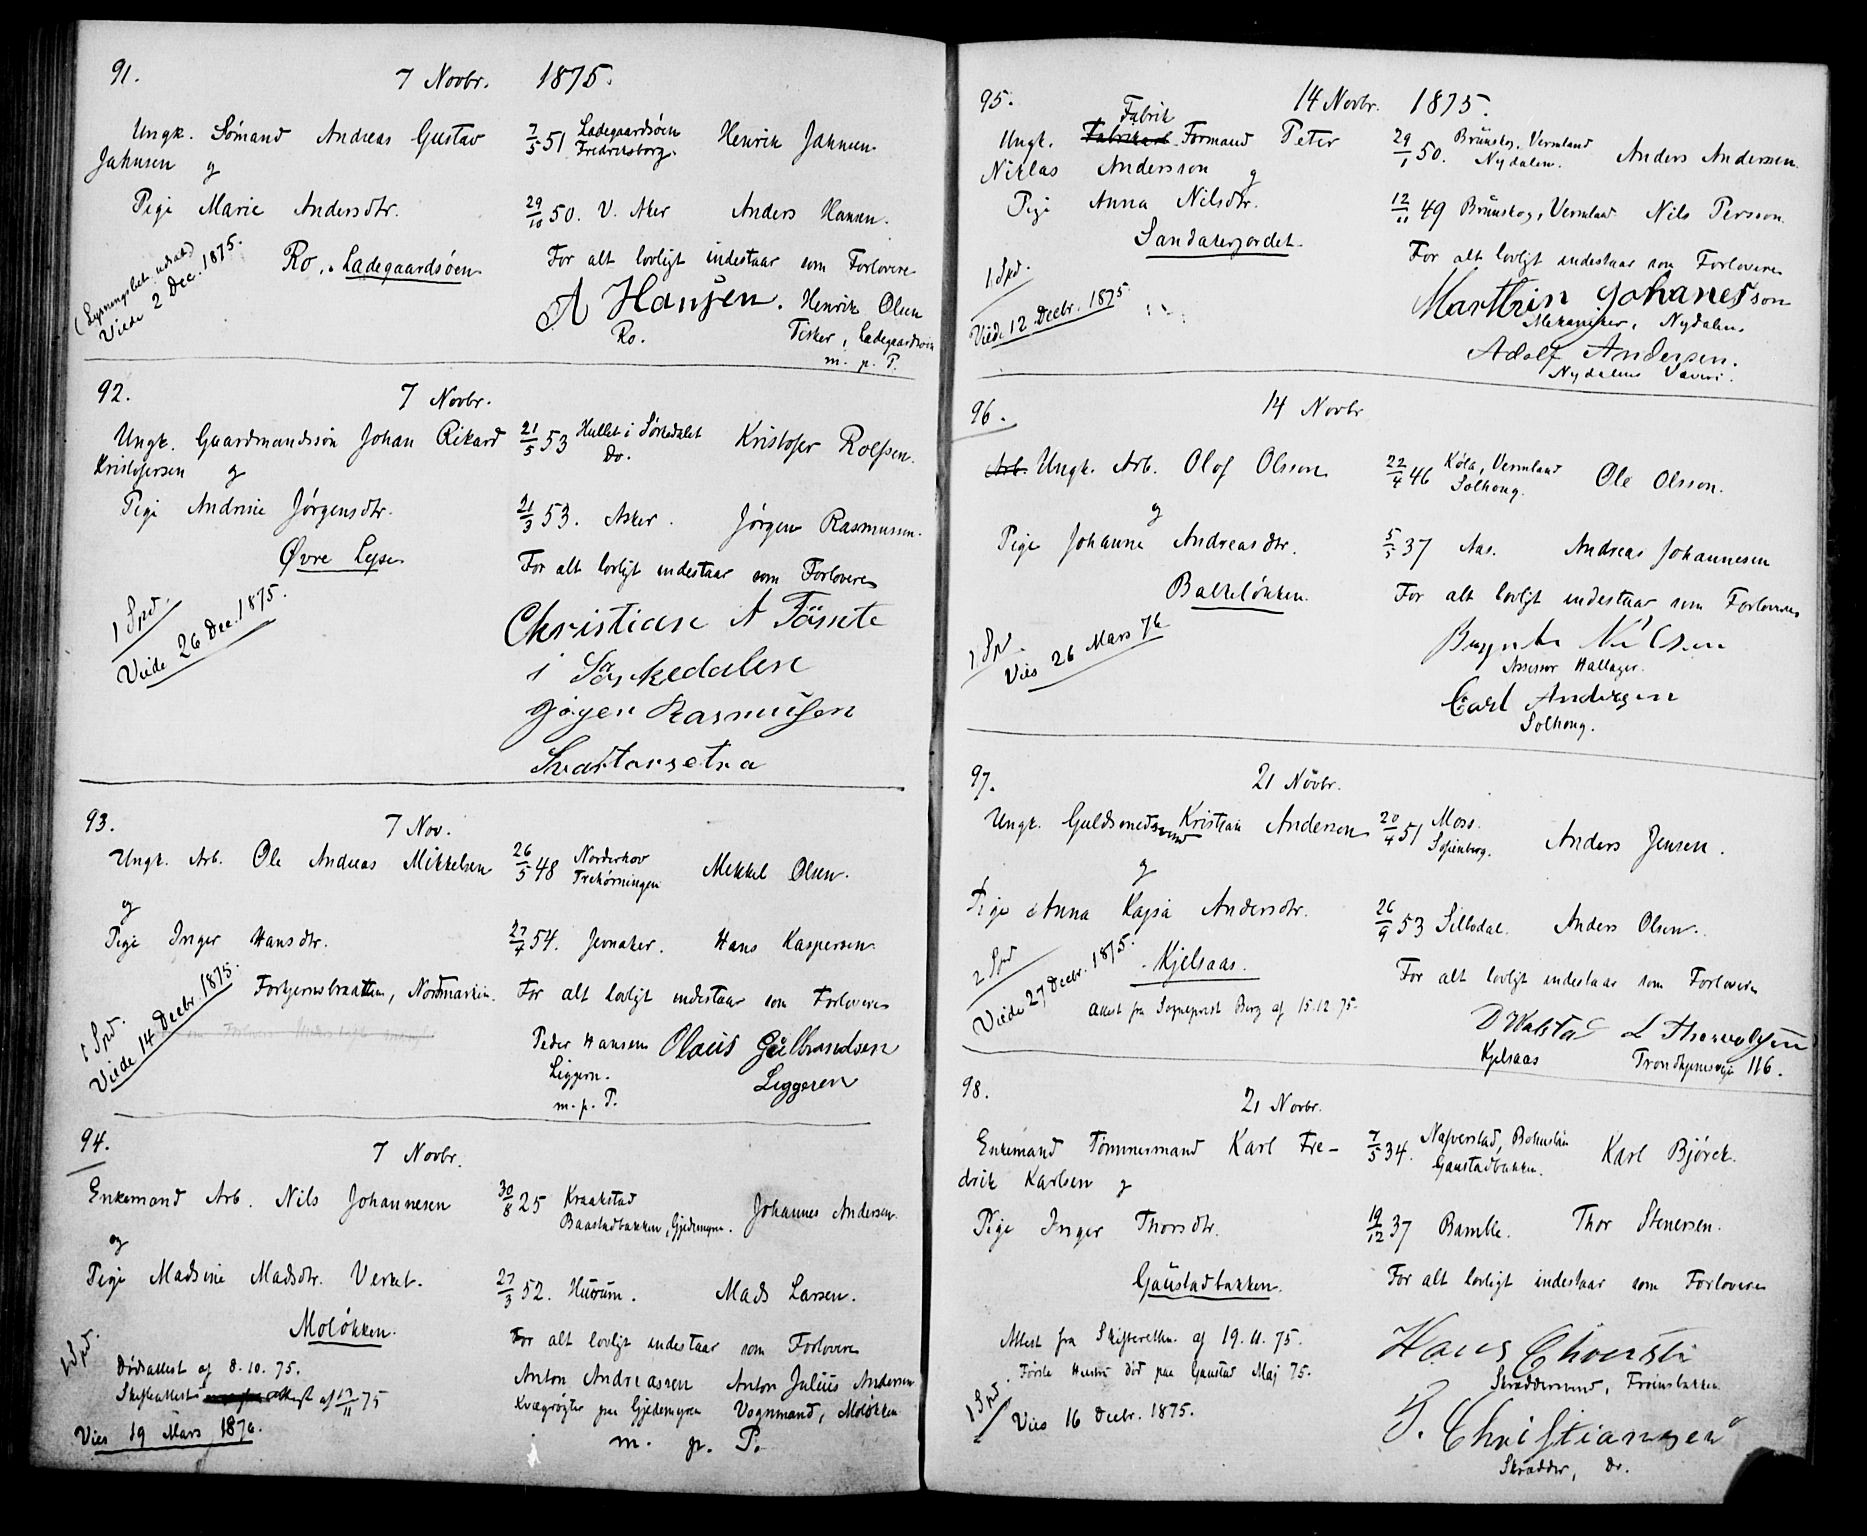 91.
7 Novbr. 1875.
Ungk. Sömand Andreas Gustav
7/5 51 Ladegaardsöen
Fredriksborg.
Henrik Jahnsen.
Jahnsen og
Pige Marie Andersdtr.
29/10 50. V. Aker Anders Hansen.
Ro, Ladegaardsöen
For alt lovligt indestaar som Forlovere
A Hansen. Henrik Olsen
Ro. Fisker, Ladegaardsöen
m. p. P.
(Lysningslist. udsat)
Viede 2 Dec. 1875.
92.
7 Novbr.
Ungk. Gaardmandssön Johan Rikard
21/5 53 Hullet i Sörkedalet
Do.
Kristofer Rolfsen.
Kristofersen og
Pige Andrine Jörgensdtr.
21/3 53. Asker. Jörgen Rasmussen.
Øvre Lyse
For alt lovligt indestaar som Forlovere
Christian A Tömte
i Sörkedalen
Jörgen Rasmusen
Svartorsetra
1 Spd.
Viede 26 Dec. 1875.
93.
7 Nov.
Ungk. Arb. Ole Andreas Mikkelsen
26/5 48 Norderhov
Trehörningen
Mekkel Olsen.
og
Pige Inger Hansdtr.
27/4 54. Jevnaker. Hans Kaspersen
Fortjernsbraatten, Nordmarken.
For alt lovligt indestaar som Forlovere
Peder Hansen Olaus Gulbrandsen
Liggern. Leggeren
m. p. P.
1 Spd.
Viede 14 Decbr 1875.
94.
7 Novbr.
Enkemand Arb. Nils Johannesen
30/8 25 Kraakstad
Baastadbakken, Gjedemyra.
Johannes Andersen
og
Pige Madsine Madsdtr. Verket.
27/3 52. Hurum. Mads Larsen.
Molökken.
For alt lovligt indestaar som Forlovere
Anton Andreassen Anton Julius Andersen
Kvægrögter paa Gjedemyra Vognmand, Molökken
m. p. P.
1 Spd.
Dödsattest af 8.10.75.
Skifteattest af 17/11 75
Vies 19 Mars 1876.
95.
14 Novbr. 1875.
Fabrik
Ungk. Formand Peter
29/1 50. Brunskog, Vermland
Nydalen.
Anders Andersen
Niklas Andersson og
Pige Anna Nilsdtr.
12/11 49 Brunskog, Vermland Nils Persson
Sandakerjordet.
For alt lovligt indestaar som Forlovere
Marthin Johanesson
Mekaniker, Nydalen.
Adolf Andersen.
Nydalens Væveri.
1 Spd.
Viede 12 Decbr. 1875.
96.
14 Novbr
Arb. Ungk. Arb. Olof Olsson
22/4 46 Köla, Vermland
Solhoug.
Ole Olsson.
og
Pige Johanne Andreasdtr.
5/5 37 Aas. Andreas Johannesen
Bakkelökken.
For alt lovligt indestaar som Forlovere
Nilsen
Assessor Hallager.
Carl Andersen
Solhoug.
1 Spd.
Vies 26 Mars 76
97.
21 Novbr.
Ungk. Guldsmedsvend Kristian Andersen
20/4 51 Moss.
Sofienberg.
Anders Jensen.
og
Pige Anna Kajsa Andersdtr.
26/9 53 Sillbodal. Anders Olsen.
Kjelsaas.
For alt lovligt indestaar som Forlovere
Attest fra Sogneprest Berg af 15.12.75.
D Walstad L Thorvaldsen
Kjelsaas Trondhjemsvejen 116.
2 Spd
Viede 27 Decbr. 1875.
98.
21 Novbr.
Enkemand Tömmermand Karl Fre-
7/5 34. Naverstad, Bohuslän
Gaustadbakken.
Karl Björck.
drik Karlsen og
Pige Inger Thorsdtr.
19/12 37 Bamble. Thor Stenersen.
Gaustadbakken.
For alt lovligt indestaar som Forlovere
Attest fra Skifteretten af 19.11.75.
Förste Hustru död paa Gaustad Maj 75.
Hans Thorsti
Skræddersvend, Froensbakken
P. Christiansen
Skrædder, Do.
1 Spd.
Vies 16 Decbr. 1875.